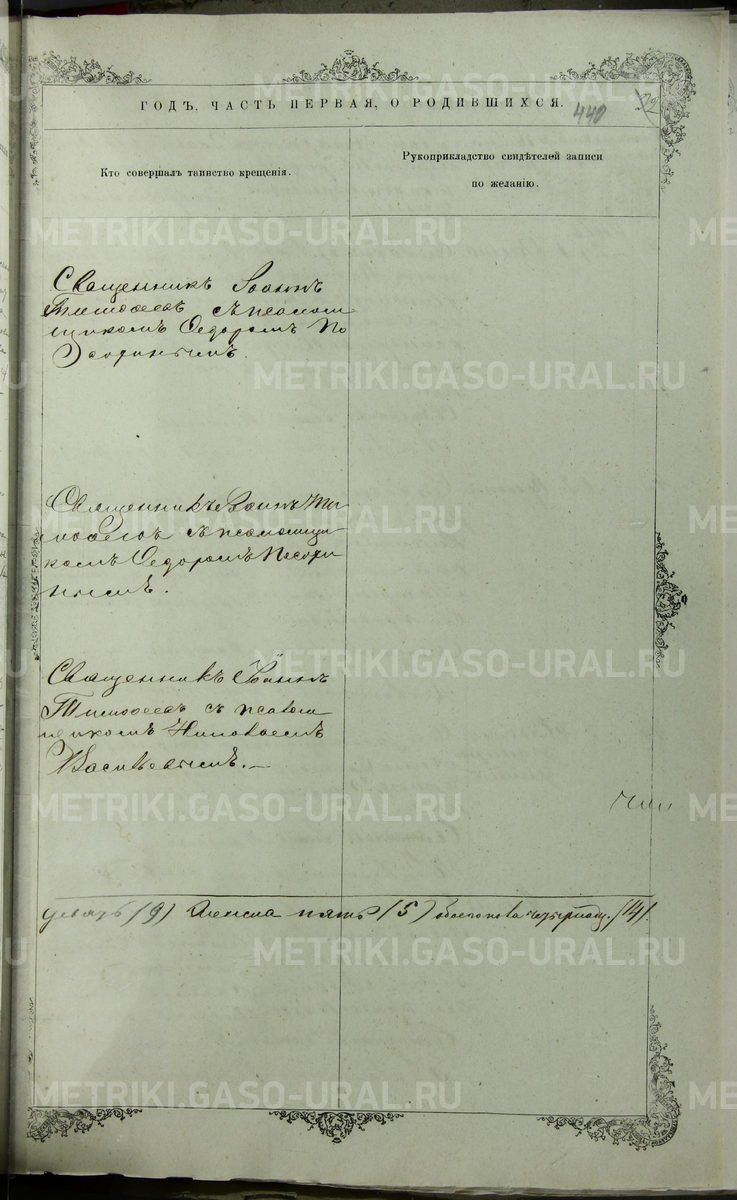 ГОДЪ, ЧАСТЬ ПЕРВАЯ, О РОДИВШИХСЯ.
440
Кто совершалъ таинство крещенія.
Рукоприкладство свидѣтелей записи
по желанію.
Священникъ Іоаннъ
Тимофеевъ съ псаломщ
щикомъ Ѳедоромъ По
Священникъ Іоаннъ Ти
мофеевъ съ псаломщи
комъ Ѳедоромъ
Священникъ Іоаннъ
Тимофеевъ съ псалом
щикомъ Николаемъ
Васильевымъ.
девять (9) женска пять (5) обоего пола четырнадц. (14).
METRIKI.GASO-URAL.RU